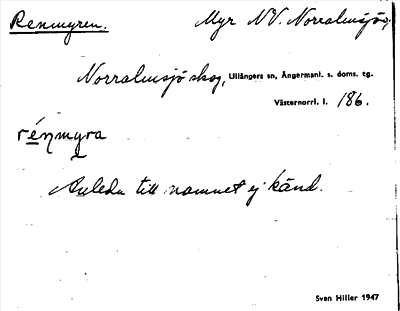 Renmyren. Myr NV. Norralmsjö,
Norralmsjö skog, Ullångers sn, Ångermanl. s. doms. tg.
Västernorrl. l. 186.
rénmyra
Anledn till namnet ej känd.
Sven Hiller 1947